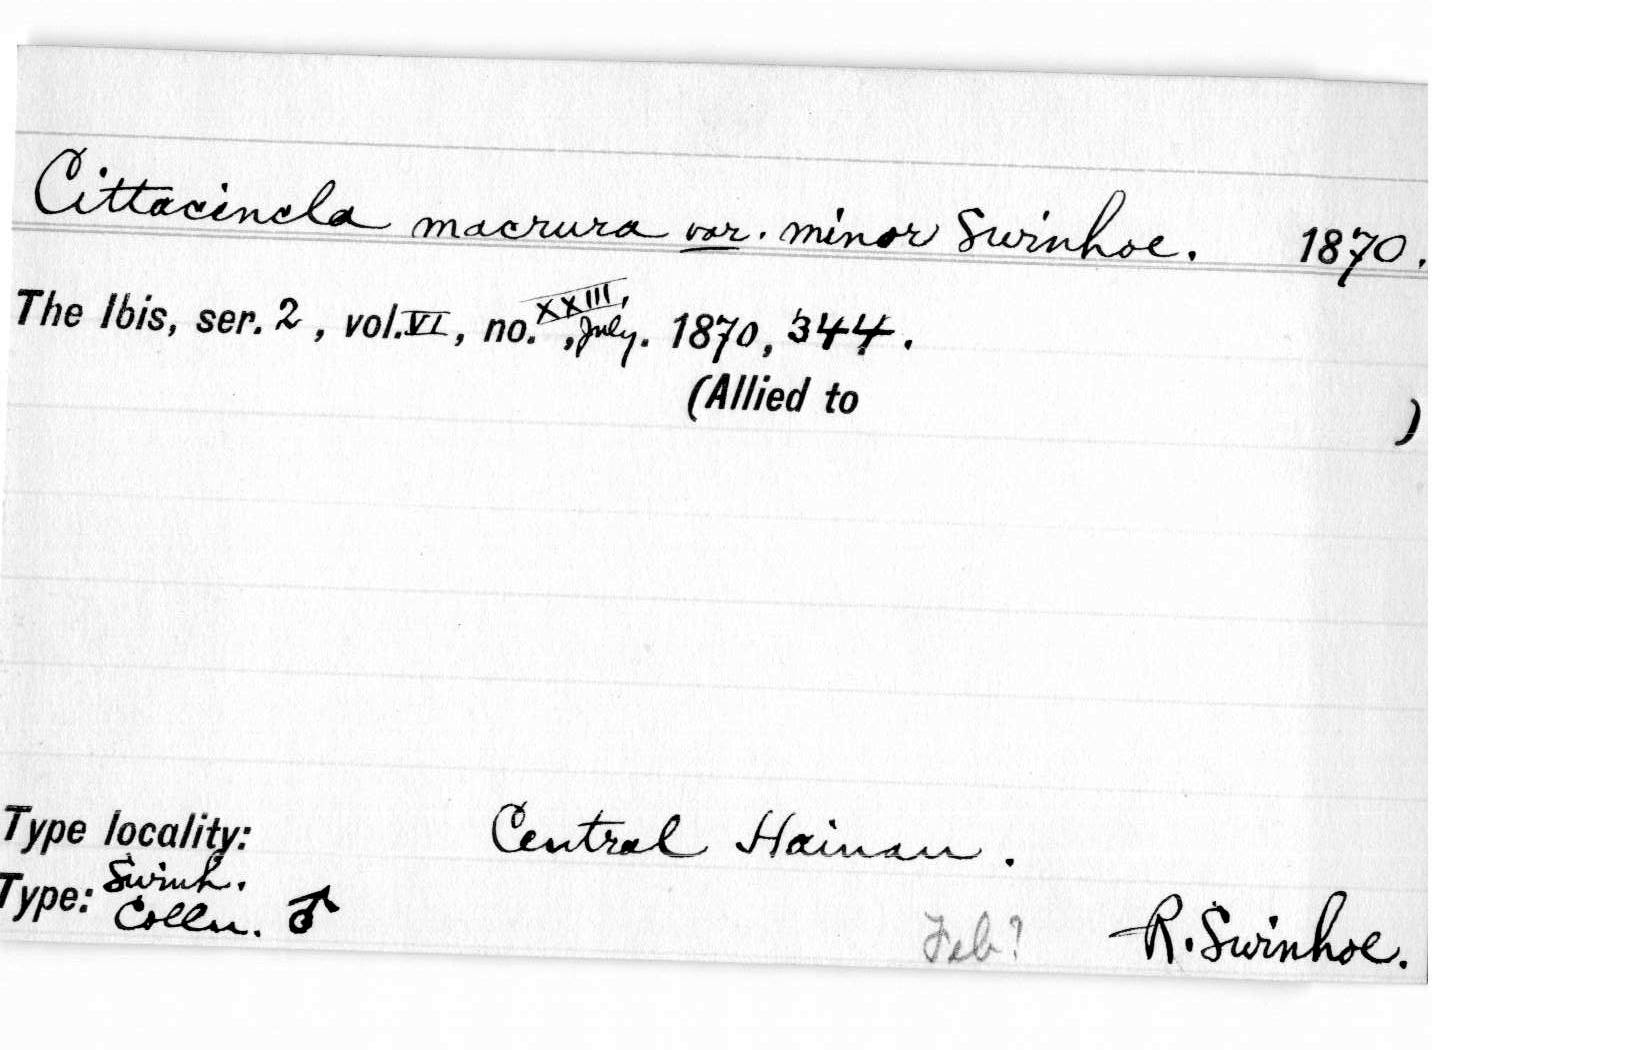 Cittacincla macrura var. minor Swinhoe. 1870.
The Ibis, ser. 2, vol. VI, no. XXIII, July. 1870, 344.
(Allied to )
Type locality: Central Hainan.
Type: Swinh. Colln. ♂ Feb? R. Swinhoe.